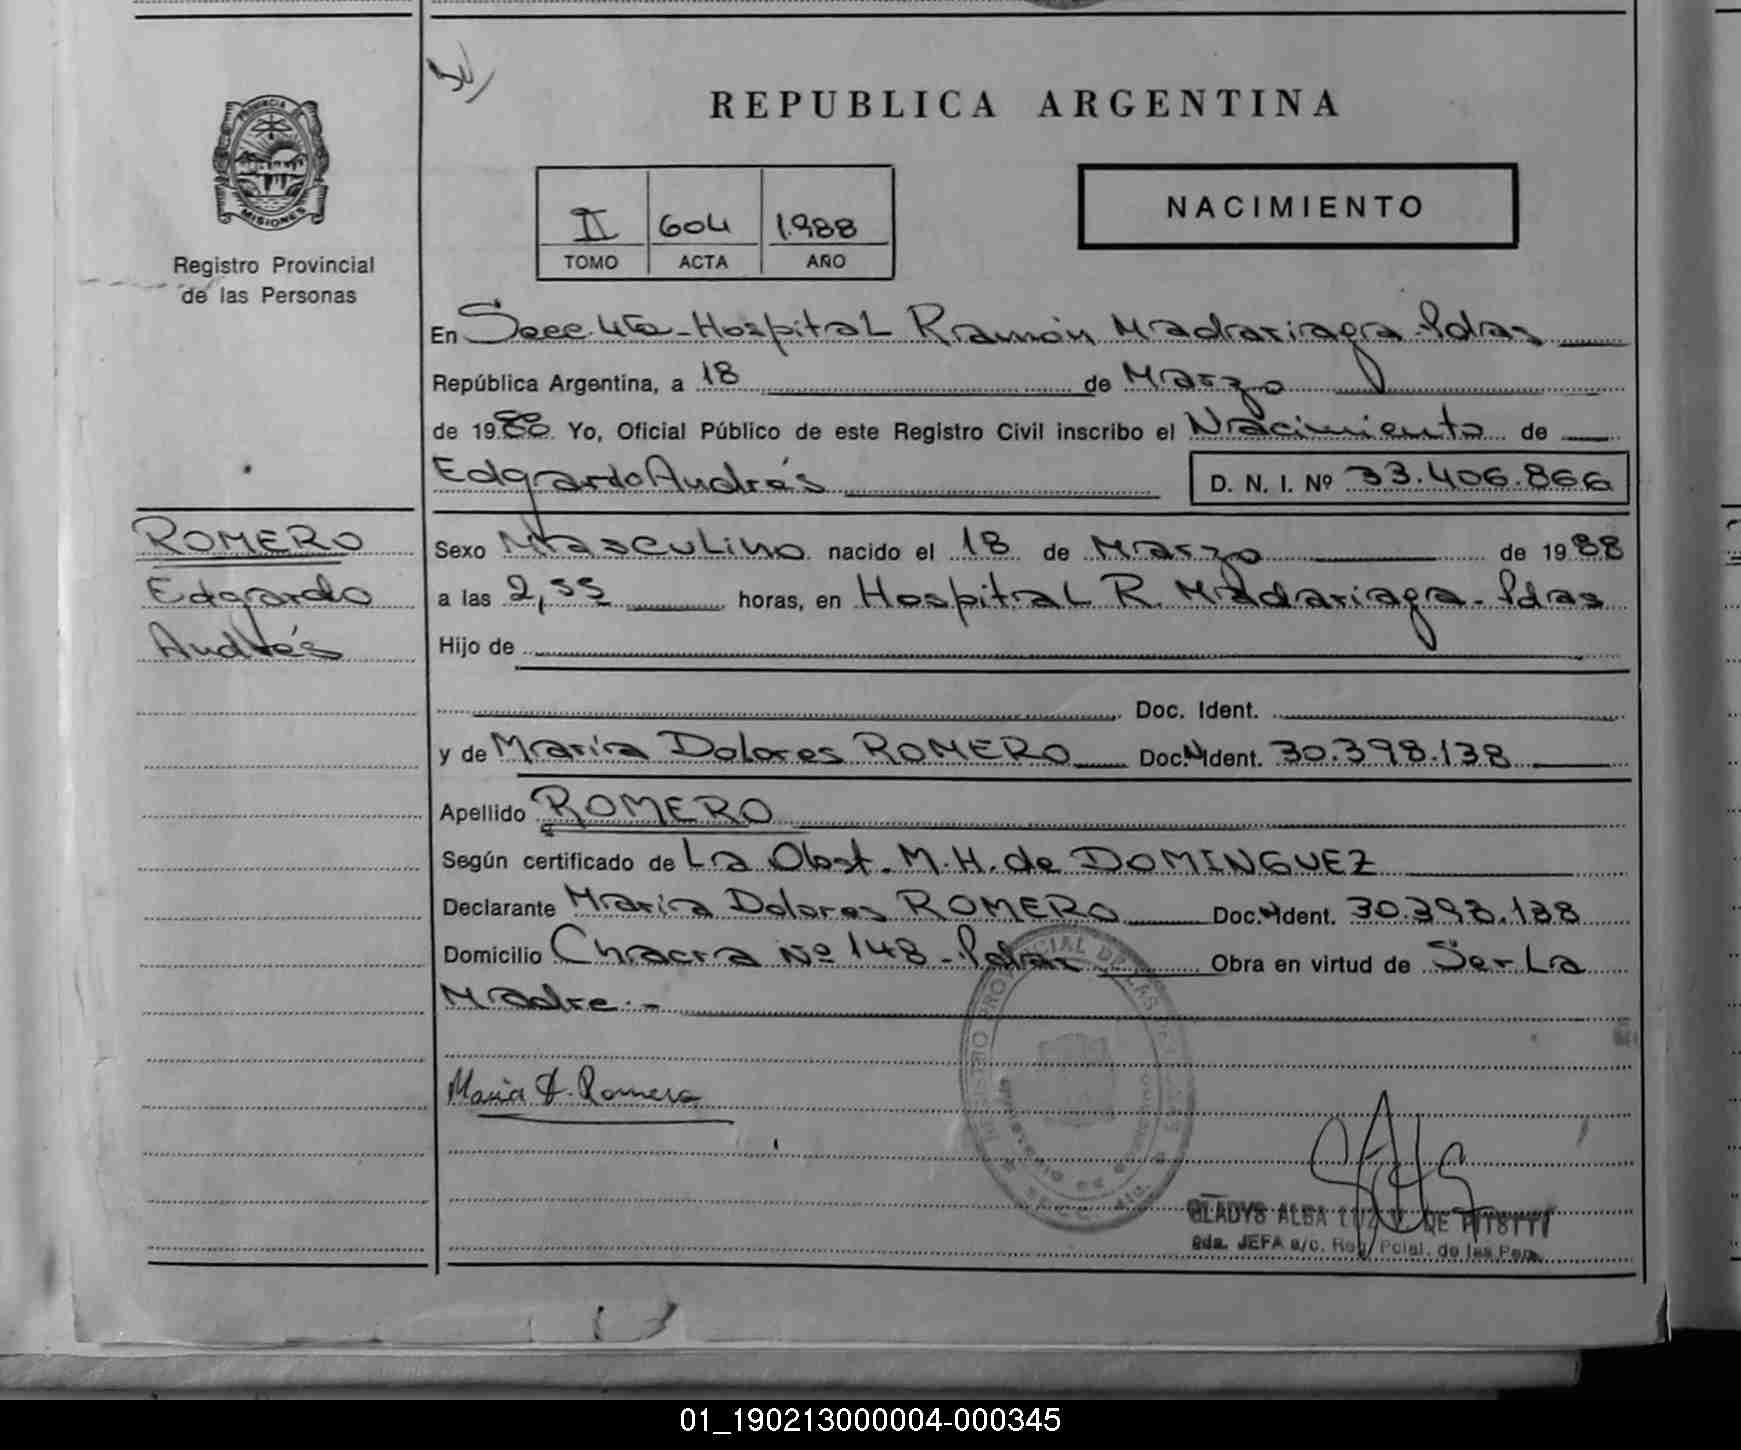 PROVINCIA DE
MISIONES
Registro Provincial
de las Personas
REPUBLICA ARGENTINA
II 604 1.988
TOMO ACTA AÑO
NACIMIENTO
En Secc. 4ta - Hospital Ramón Madariaga - Pdas
República Argentina, a 18 de Marzo
de 1988 Yo, Oficial Público de este Registro Civil inscribo el Nacimiento de
Edgardo Andrés D. N. I. Nº 33.406.866
ROMERO
Edgardo
Andrés
Sexo Masculino nacido el 18 de Marzo de 1988
a las 2,55 horas, en Hospital R. Madariaga - Pdas
Hijo de
Doc. Ident.
y de María Dolores ROMERO Doc. N Ident. 30.398.138
Apellido ROMERO
Según certificado de La Obst. M. H. de DOMINGUEZ
Declarante María Dolores ROMERO Doc. N Ident. 30.398.138
Domicilio Chacra Nº 148 - Pdas Obra en virtud de Ser La
Madre.-
María D. Romero
GLADYS ALBA LUZ DE
2da. JEFA a/c. Reg. Pcial. de las Pers.
01_190213000004-000345